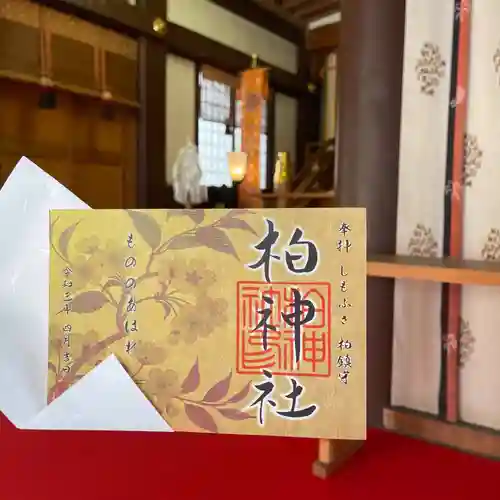 奉拝 しもふさ 柏鎮守
柏神社
もののあはれ
令和三年 四月吉日